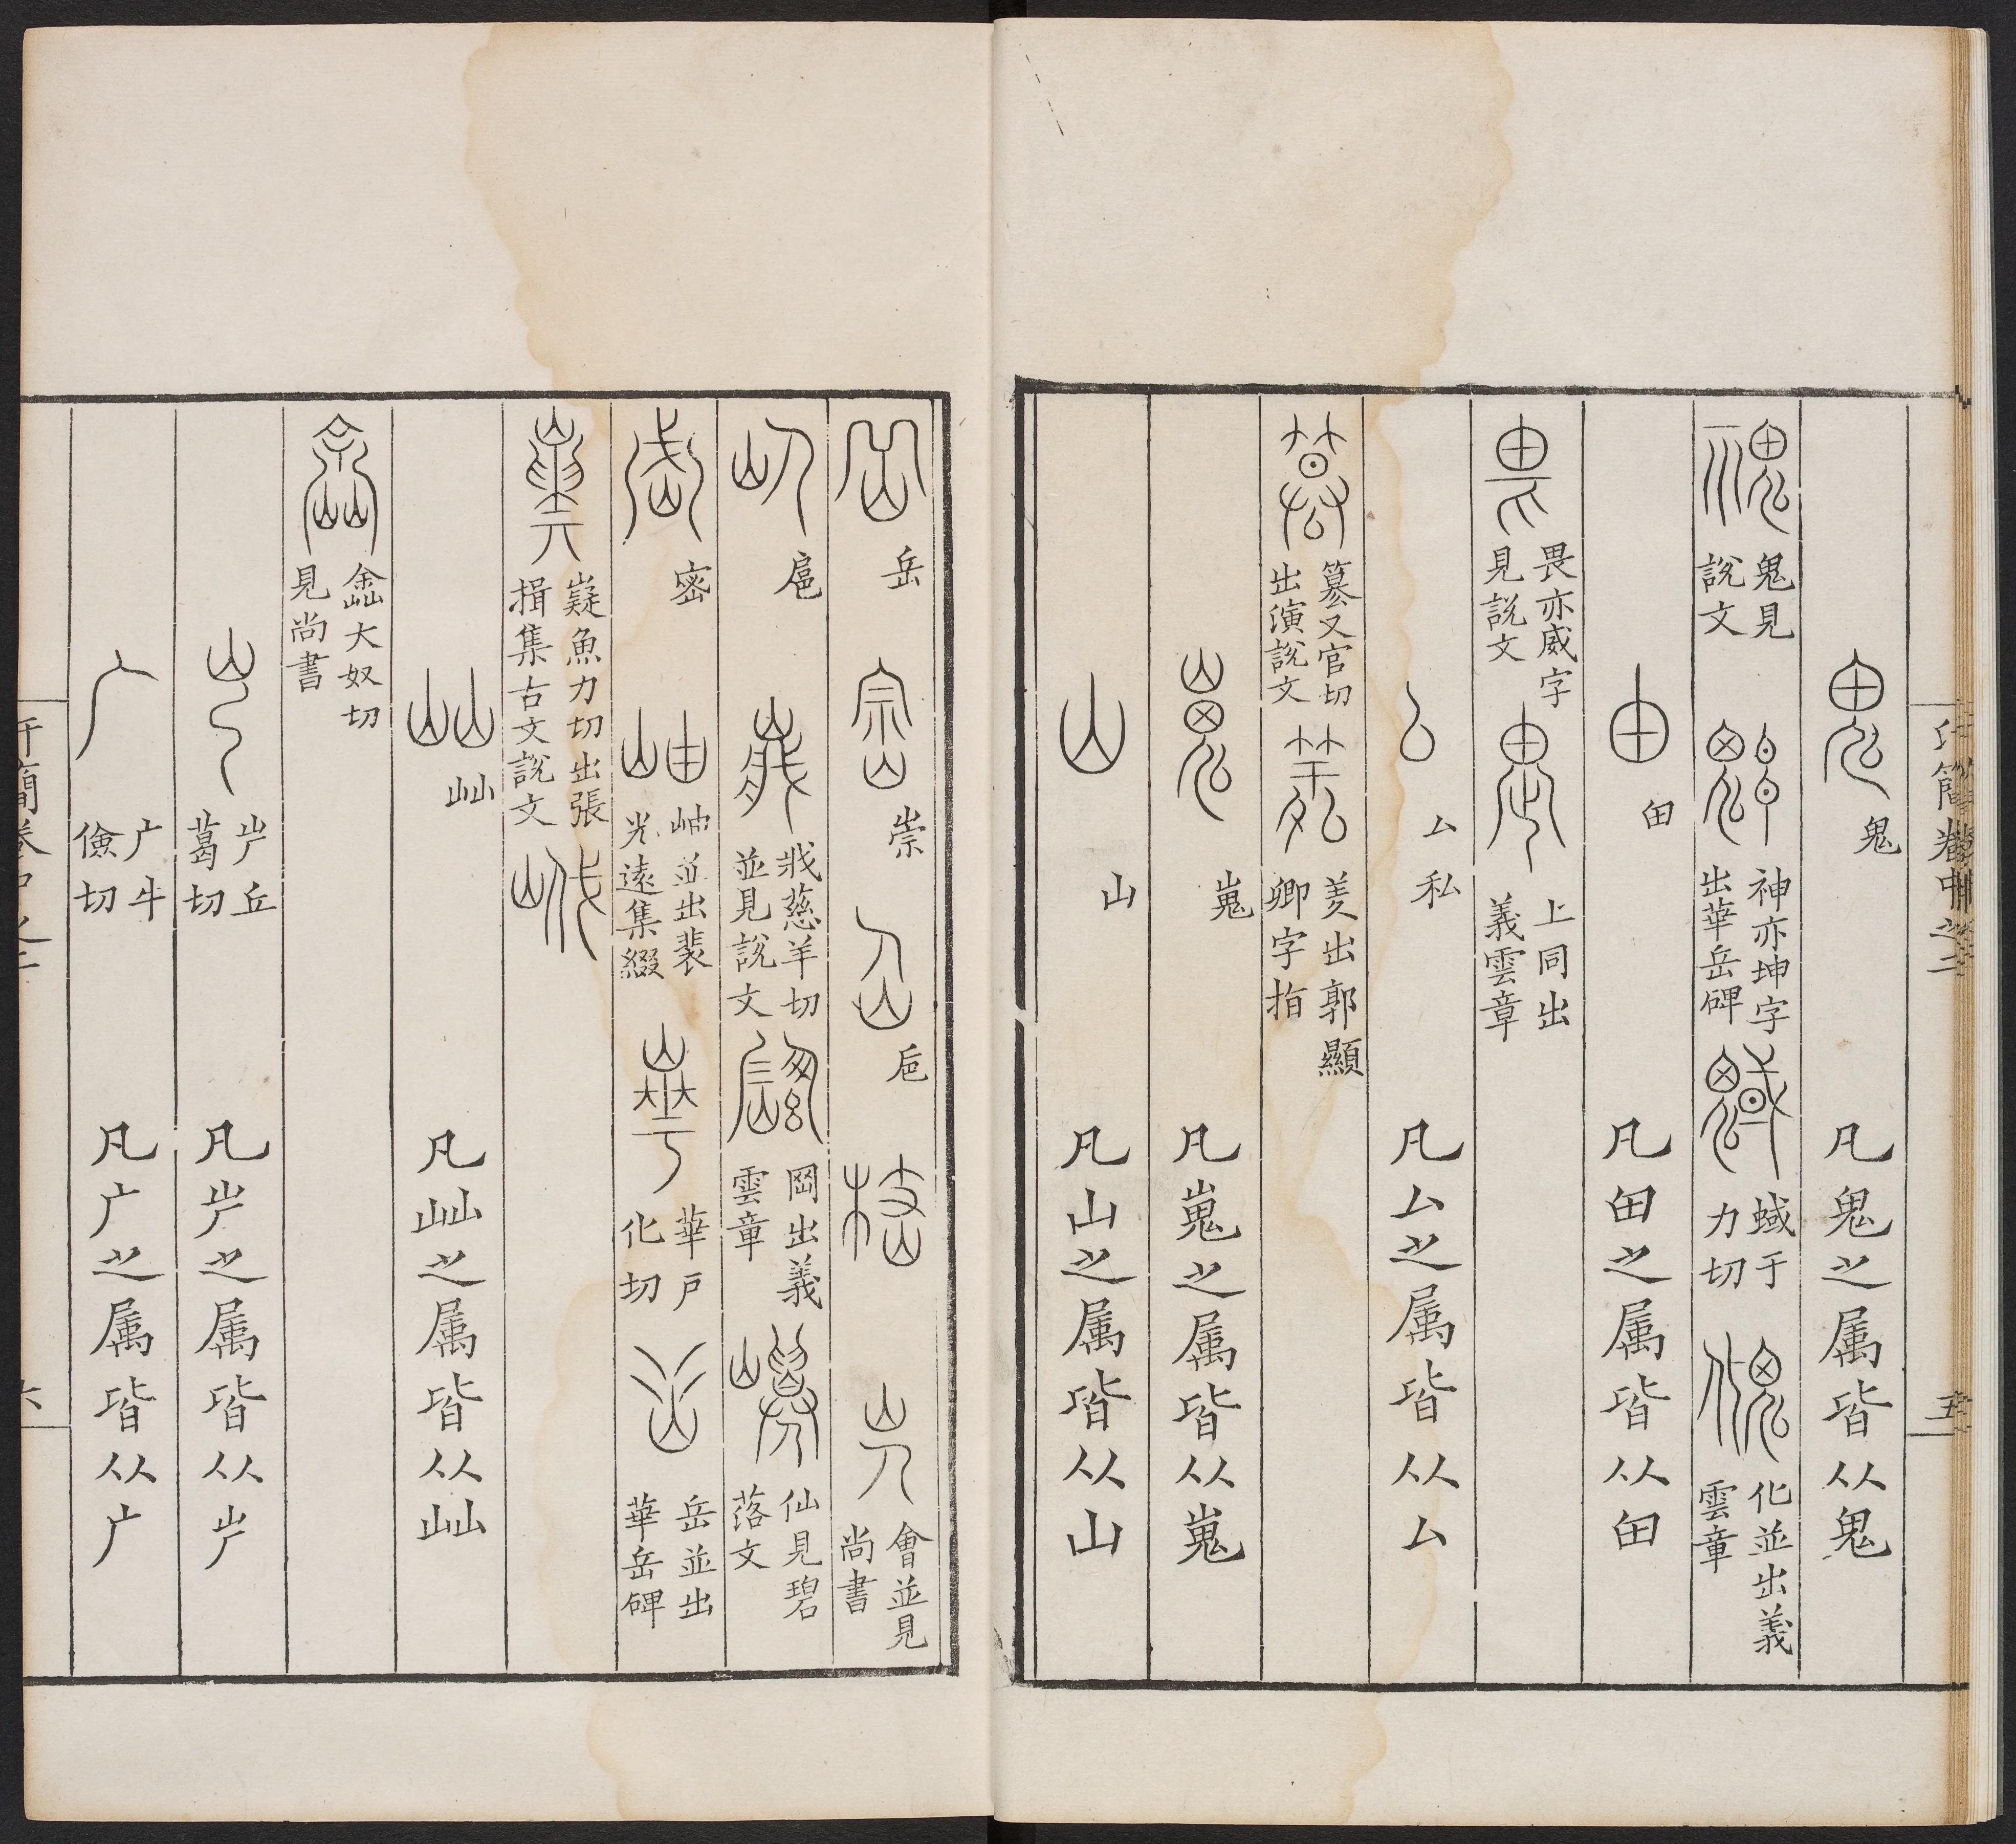 鬼 凡鬼之属皆从鬼
鬼見說文 神亦坤字出華岳碑 蜮于力切 化並出義雲章
甶 凡甶之属皆从甶
畏亦威字見說文 上同出義雲章
厶私 凡厶之属皆从厶
篡叉官切出演說文 羑出郭顯卿字指
嵬 凡嵬之属皆从嵬
山 凡山之属皆从山
岳 崇 巵 會並見尚書
扈 戕慈羊切並見說文 岡出義雲章 仙見碧落文
密 岫並出裴光遠集綴 華戶化切 岳並出華岳碑
嶷魚力切出張揖集古文說文
屾 凡屾之属皆从屾
嵞大奴切見尚書
屵丘葛切 凡屵之属皆从屵
广牛儉切 凡广之属皆从广